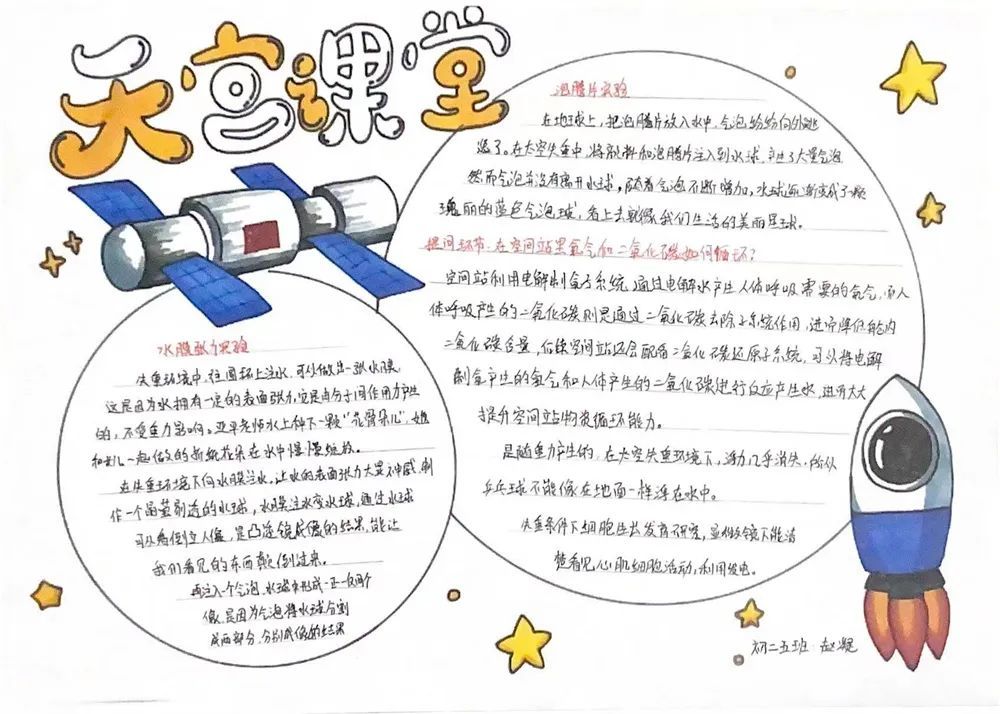 天宫课堂
水膜张力实验
失重环境中,往圆环上注水,可以做出一张水膜
这是因为水拥有一定的表面张力,它是由分子间作用力产生
的,不受重力影响。亚平老师水上种下一颗“花骨朵儿”,她
和女儿一起做的折纸花朵在水中慢慢绽放。
在失重环境下向水膜注水,让水的表面张力大显神威,制
作一个晶莹剔透的水球,水膜注水变水球,通过水球
可以看倒立人像,是凸透镜成像的结果,能让
我们看见的东西颠倒过来。
再注入一个气泡,水球中形成一正一反两个
像,是因为气泡将水球分割
成两部分,分别成像的结果
泡腾片实验
在地球上,把泡腾片放入水中,气泡纷纷向外逃
逸了。在太空失重中,将颜料和泡腾片注入到水球,产生了大量气泡
然而气泡并没有离开水球,随着气泡不断增加,水球逐渐变成了一颗
瑰丽的蓝色气泡球,看上去就像我们生活的美丽星球。
提问环节:在空间站里氧气和二氧化碳如何循环?
空间站利用电解制氧子系统,通过电解水产生人体呼吸需要的氧气,而人
体呼吸产生的二氧化碳则是通过二氧化碳去除子系统作用,进而降低舱内
二氧化碳含量,后续空间站还会配备二氧化碳还原子系统,可以将电解
制氧产生的氢气和人体产生的二氧化碳进行反应产生水,进而大大
提升空间站物资循环能力。
是随重力产生的,在太空失重环境下,浮力几乎消失,所以
乒乓球不能像在地面一样浮在水中。
失重条件下细胞生长发育研究,显微镜下能清
楚看见,心肌细胞活动,利用发电。
初二五班 赵凝